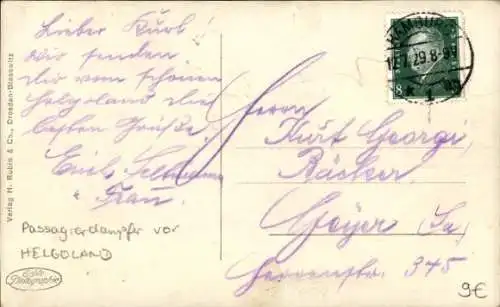 Lieber Kurt!
Wir senden
Dir vom schönen
Helgoland die
besten Grüße.
Emil
u. Frau.
Passagierdampfer vor
HELGOLAND
Echte
Photographie
Verlag H. Rubin & Co., Dresden-Blasewitz
HAMBURG
12.7.29.8-9V
* 1
8
Herrn
Kurt Georgi,
Bäcker.
Geyer (Sa)
Herrenstr. 345
9€